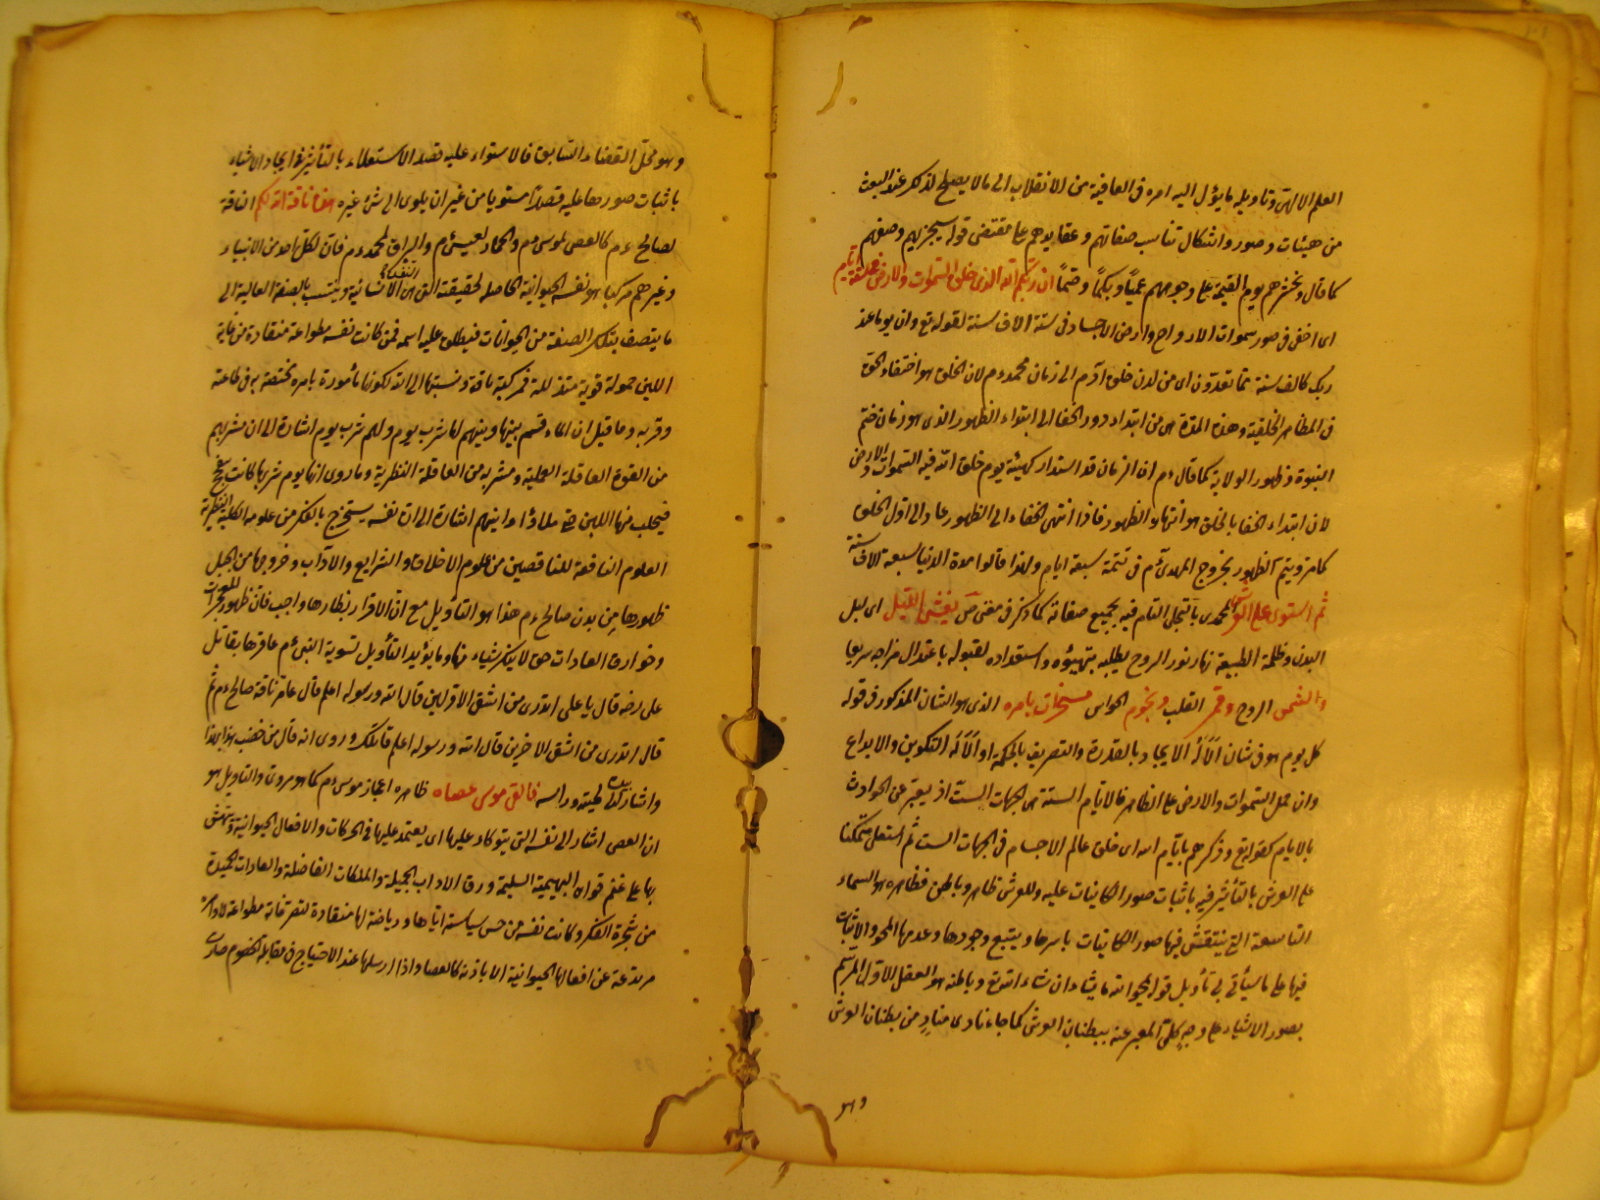 العلم الالهى وتاويله مايؤل اليه امره فى العاقبة من الانقلاب الى مالا يصلح لذكر عند البعث
من هيئات وصور واشكال تناسب صفاتهم وعقايدهم على مقتضى قوله سيجزيهم وصفهم
كما قال ونحشرهم يوم القيمة على وجوههم عميا وبكما وصما ان ربكم الله الذى خلق السموات والارض فى ستة ايام
اى اختفى فى صور سموات الارواح وارض الاجساد فى ستة الاف سنة لقوله تع وان يوما عند
ربك كالف سنة مما تعدون اى من لدن خلق آدم الى زمان محمد ءم لان الخلق هو اختفاء الحق
فى المظاهر الخلقية وهذه المدة من ابتداء دور الخفا الى ابتداء الظهور الذى هو زمان ختم
النبوة وظهور الولاية كما قال ءم ان الزمان قد استدار كهيئة يوم خلق الله فيه السموات والارض
لان ابتداء الخفا بالخلق هو انتهاء الظهور فاذا انتهى الخفاء الى الظهور عاد الى اول الخلق
كما مر ويتم الظهور بخروج المهدى ءم فى تتمة سبعة ايام ولهذا قالوا مدة الدنيا سبعة الاف سنة
ثم استوى على العرش المحمدى بالتجلى التام فيه بجميع صفاته كما ذكر فى معنى ص يغشى الليل اى ليل
البدن وظلمة الطبيعة نهار نور الروح يطلبه بتهيؤه واستعداده لقبوله باعتدال مزاجه سريعا
والشمس الروح وقمر القلب ونجوم الحواس مسخرات بامره الذى هو الشان المذكور فى قوله
كل يوم هو فى شان ألا له الايجاد بالقدرة والتصريف بالحكمة او ألا له التكوين والابداع
وان حمل السموات والارض على الظاهر فالايام الستة هى الجهات الست اذ يعبر عن الحوادث
بالايام كقوله تع وذكرهم بايام الله اى خلق عالم الاجسام فى الجهات الست ثم استعلى متمكنا
على العرش بالتأثير فيه باثبات صور الكاينات عليه وللعرش ظاهر وباطن فظاهره هو السماء
التاسعة التى ينتقش فيها صور الكاينات باسرها ويتبع وجودها وعدمها المحو والاثبات
فيها على ما سيأتى فى تأويل قوله يمحوا الله ما يشاء ان شاء الله تع وباطنه هو العقل الاول المرتسم
بصور الاشياء على وجه كلى المعبر عنه ببطنان العرش كما جاء نادى مناد من بطنان العرش
وهو
وهو محل القضاء السابق فالاستواء عليه قصد الاستعلاء بالتأثير فى ايجاد الاشياء
باثبات صورها عليه قصدا مستويا من غير ان يلوى الى شئ غيره هذه ناقة الله لكم الناقة
لصالح ءم كالعصى لموسى ءم والحمار لعيسى ءم والبراق لمحمد ءم فان لكل احد من الانبياء
وغيرهم مركبا هو نفسه الحيوانية الحاصله لحقيقته التى هى النفس الانسانية وينتسب بالصفة الغالبة الى
ما يتصف بتلك الصفة من الحيوانات فيطلق عليه اسمه فمن كانت نفسه مطواعة منقادة من غاية
اللين حمولة قوية متذللة فمركبه ناقة ونسبتها الى الله لكونها مأمورة بامره مختصة به فى طاعته
وقربه وما قيل ان الماء قسم بينها وبينهم لها شرب يوم ولهم شرب يوم اشارة الى ان مشربهم
من القوة العاقلة العملية ومشربه من العاقلة النظرية وما روى انها يوم شربها كانت تفحج
فيحلب منها اللبن حتى ملاؤا اوانيهم اشارة الى ان نفسه يستخرج بالفكر من علومه الكلية النظرية
العلوم النافعة للناقصين من علوم الاخلاق والشرايع والآداب وخروجها من الجبل
ظهورها من بدن صالح ءم هذا هو التأويل مع ان الاقرار بظاهرها واجب فان ظهور المعجزات
وخوارق العادات حق لا ينكر شياء منها ومما يؤيد التأويل تسوية النبى ءم عاقرها بقاتل
على رضه قال يا على اتدرى من اشقى الاولين قال الله ورسوله اعلم قال عاقر ناقة صالح ءم ثم
قال اتدرى من اشقى الاخرين قال الله ورسوله اعلم قال قاتلك وروى انه قال من خضب هذا بهذا
واشار الى لحيته وراسه فالقى موسى عصاه ظاهره اعجاز موسى ءم كما هو مروى والتاويل هو
ان العصى اشار الى نفسه التى يتوكاء عليها اى يعتمد عليها فى الحركات والافعال الحيوانية ويهش
بها على غنم قواه البهيمية السليمة ورق الاداب الجميلة والملكات الفاضلة والعادات الحميدة
من شجرة الفكر وكانت نفسه من حسن سياسته اياها ورياضة لها منقادة لتصرفاته مطواعة لاوامره
مرتدعة عن افعالها الحيوانية الا باذنه كالعصا واذا ارسلها عند الاحتياج فى مقابلة الخصوم صارت